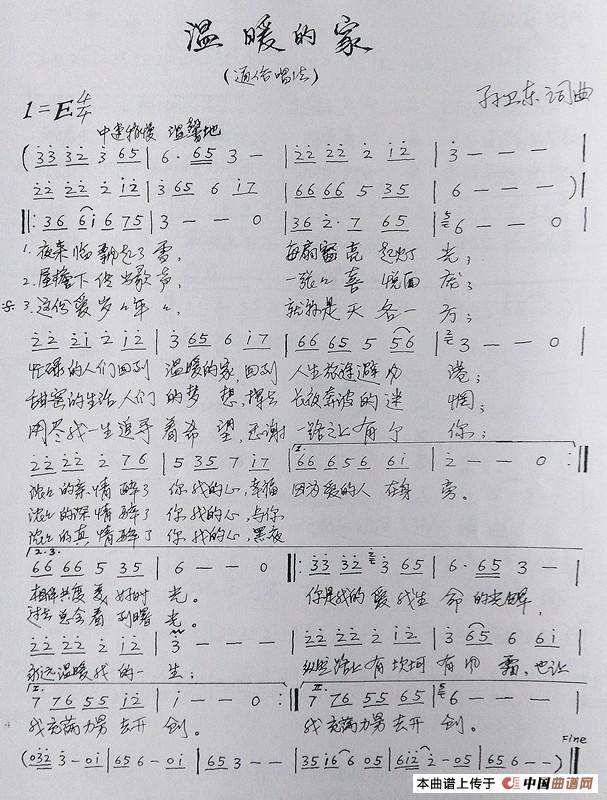 温暖的家
(通俗唱法)
孙卫东词曲
1=E 4/4
中速稍慢 温馨地
(33 32 3 65 | 6· 65 3 — | 22 22 2 12 | 3 — — — |
22 22 2 12 | 3 65 6 17 | 66 66 5 35 | 6 — — — )|
‖: 36 61 6 75 | 3 — — 0 | 36 2·7 65 | 6 — — 0 |
1.夜来临飘起了雪, 每扇窗亮起灯光;
2.屋檐下传出歌声, 一张张喜悦面庞;
3.这份爱岁岁年年, 就算是天各一方;
22 21 2 12 | 3 65 6 17 | 66 65 5 56 | 3 — — 0 |
忙碌的人们回到 温暖的家,回到 人生旅途避风 港;
甜蜜的生活人们 的梦 想,择去 长夜奔波的迷 惘;
用尽我一生追寻 着希 望,还谢 一路之上有个 你;
22 22 2 76 | 5 35 7 17 | 1. 66 656 61 | 2 — — 0 :‖
浓浓的亲情醉了 你我的心,幸福 因为爱的人 在身 旁。
浓浓的深情醉了 你我的心,与你
浓浓的真情醉了 你我的心,黑夜
2.3. 66 66 5 35 | 6 — — 0 ‖: 33 32 3 65 | 6·65 3 — |
相伴共度美好时 光。 你是我的 爱我生 命的光辉,
过去总会看到曙 光。
22 22 2 12 | 3 — — — | 22 22 2 12 | 3 65 6 61 |
永远温暖我的一 生; 纵然路上有坎坷 有风 霜,也让
I. 7 76 55 12 | 1 — — 0 :‖ II. 7 76 55 65 | 6 — — — |
我充满力量 去开 创。 我充满力量 去开 创。
Fine
(032 3 — 01 | 65 6 — 01 | 65 3 — — | 35 16 6 05 | 612 2 — 05 | 65 6 — —)‖
本曲谱上传于 中国曲谱网